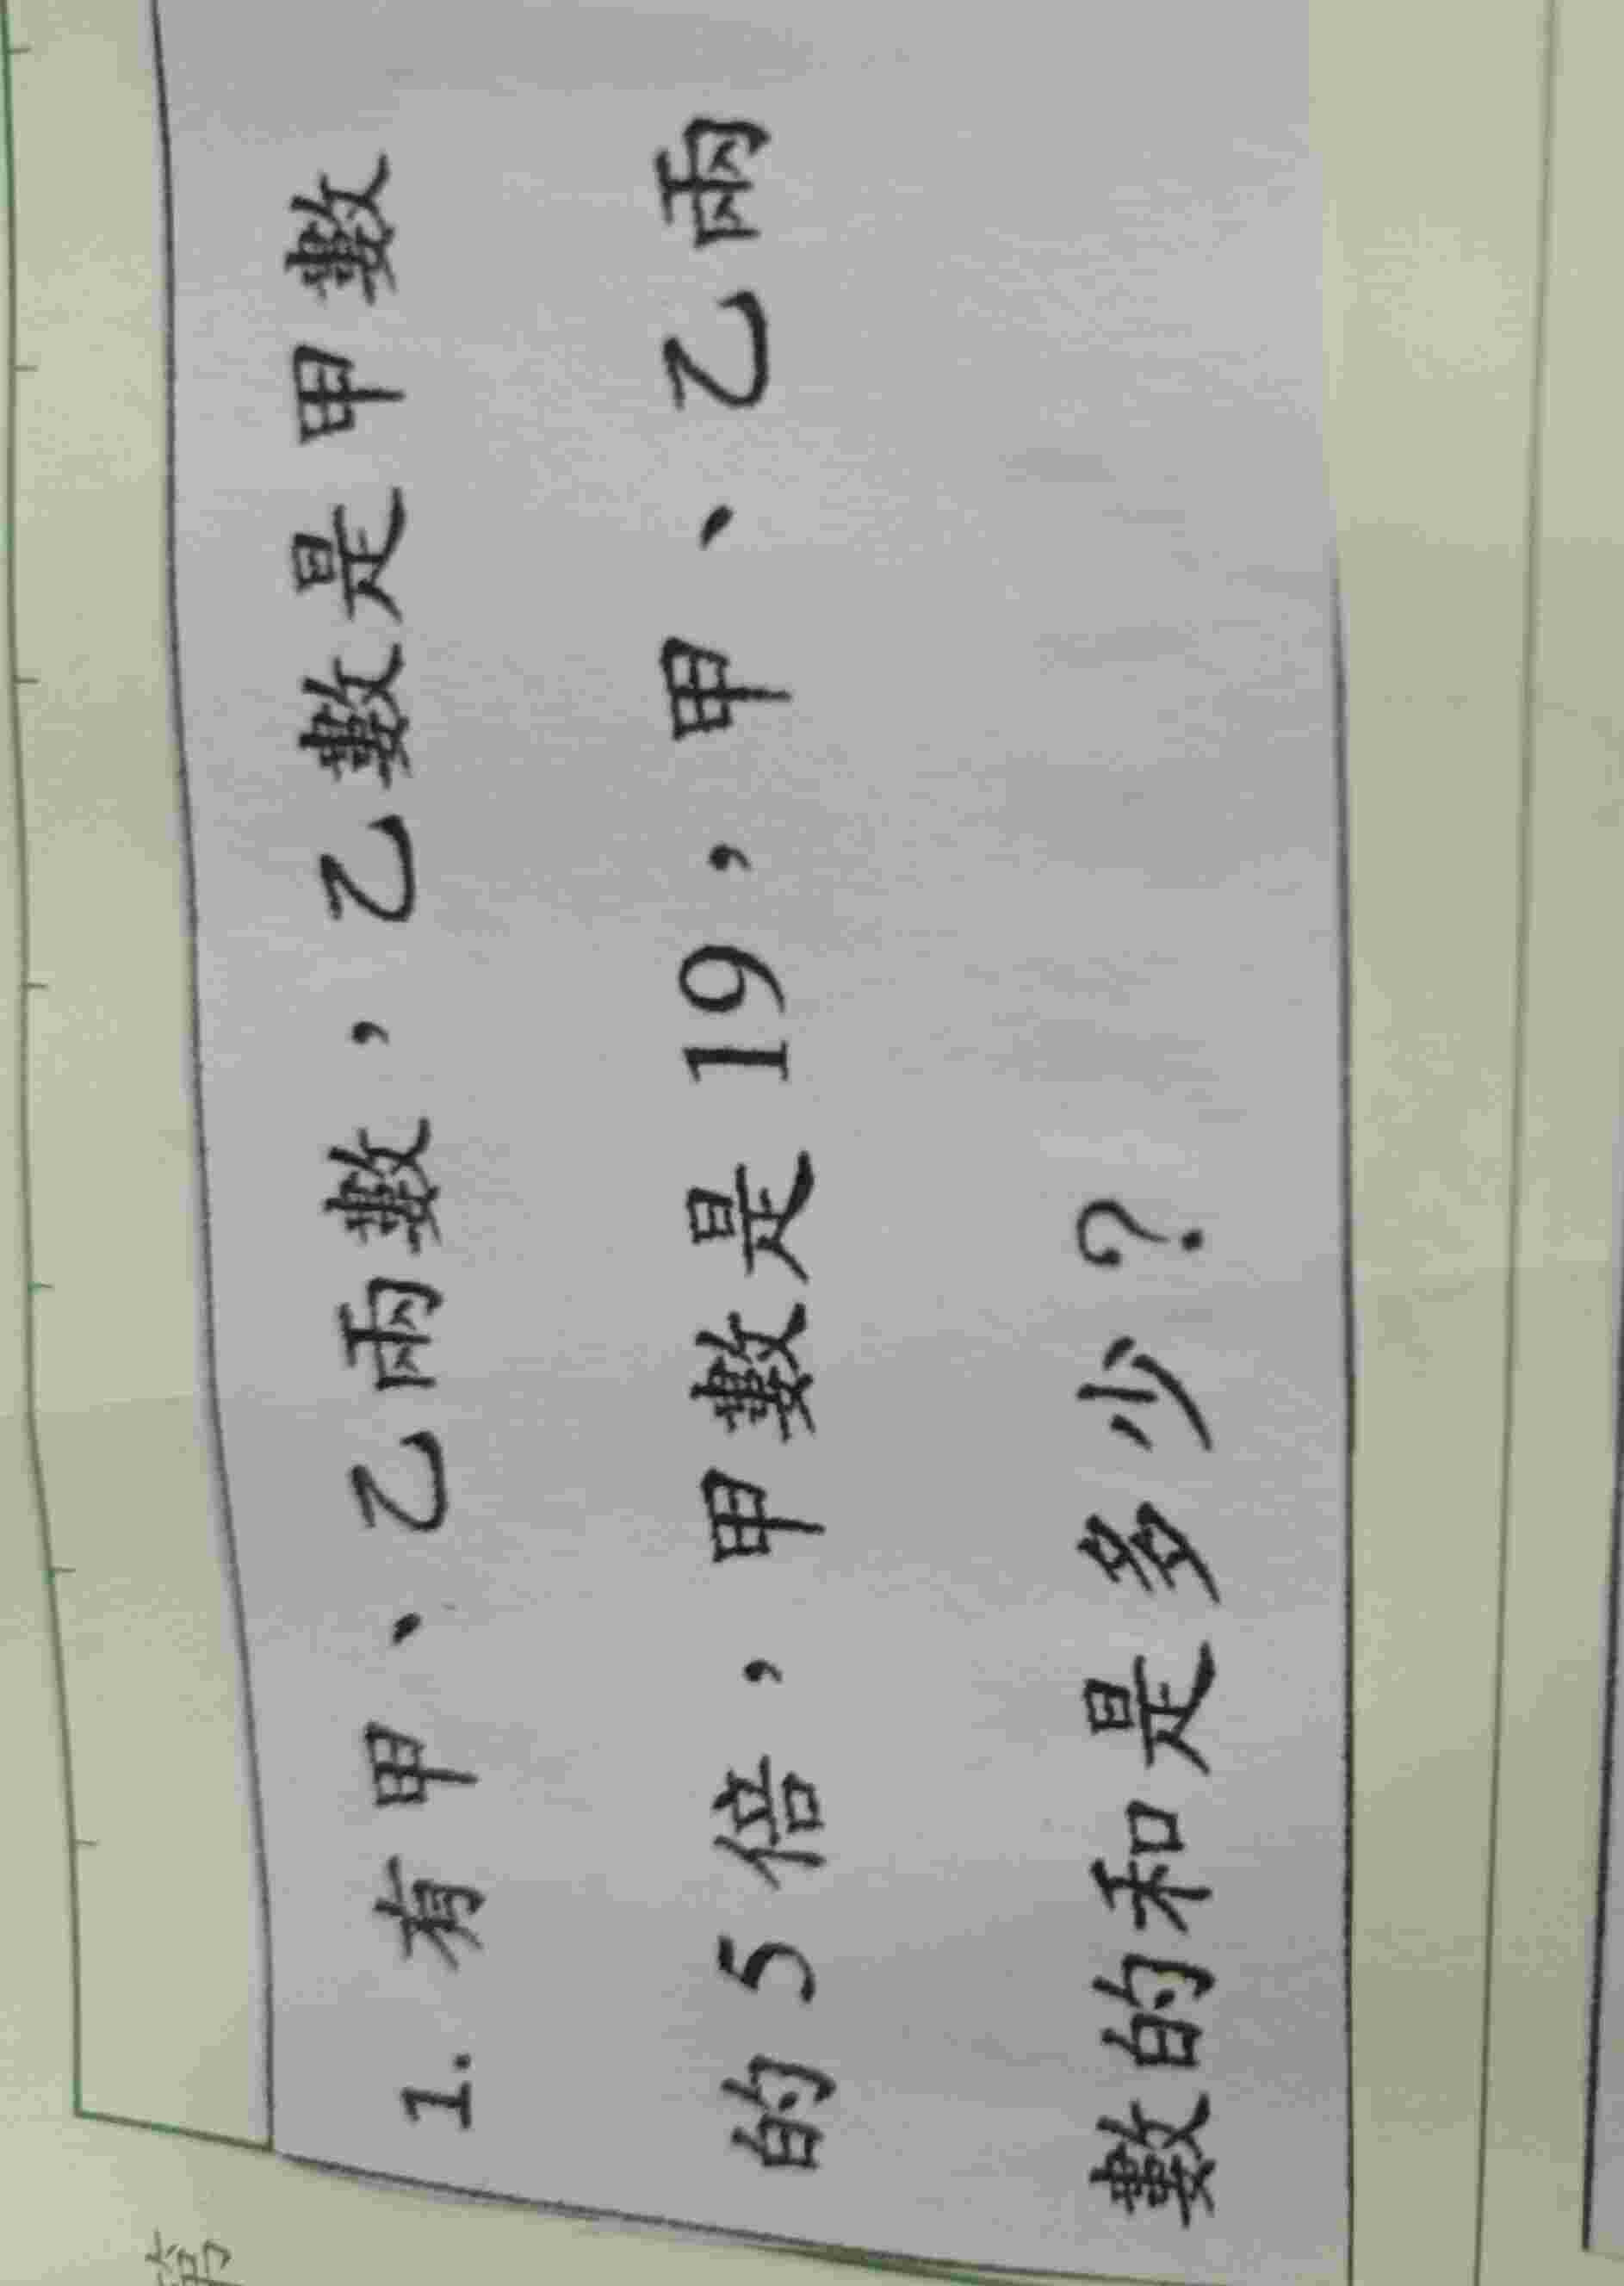 1. 有甲、乙兩數，乙數是甲數
的 5 倍，甲數是 19，甲、乙兩
數的和是多少？